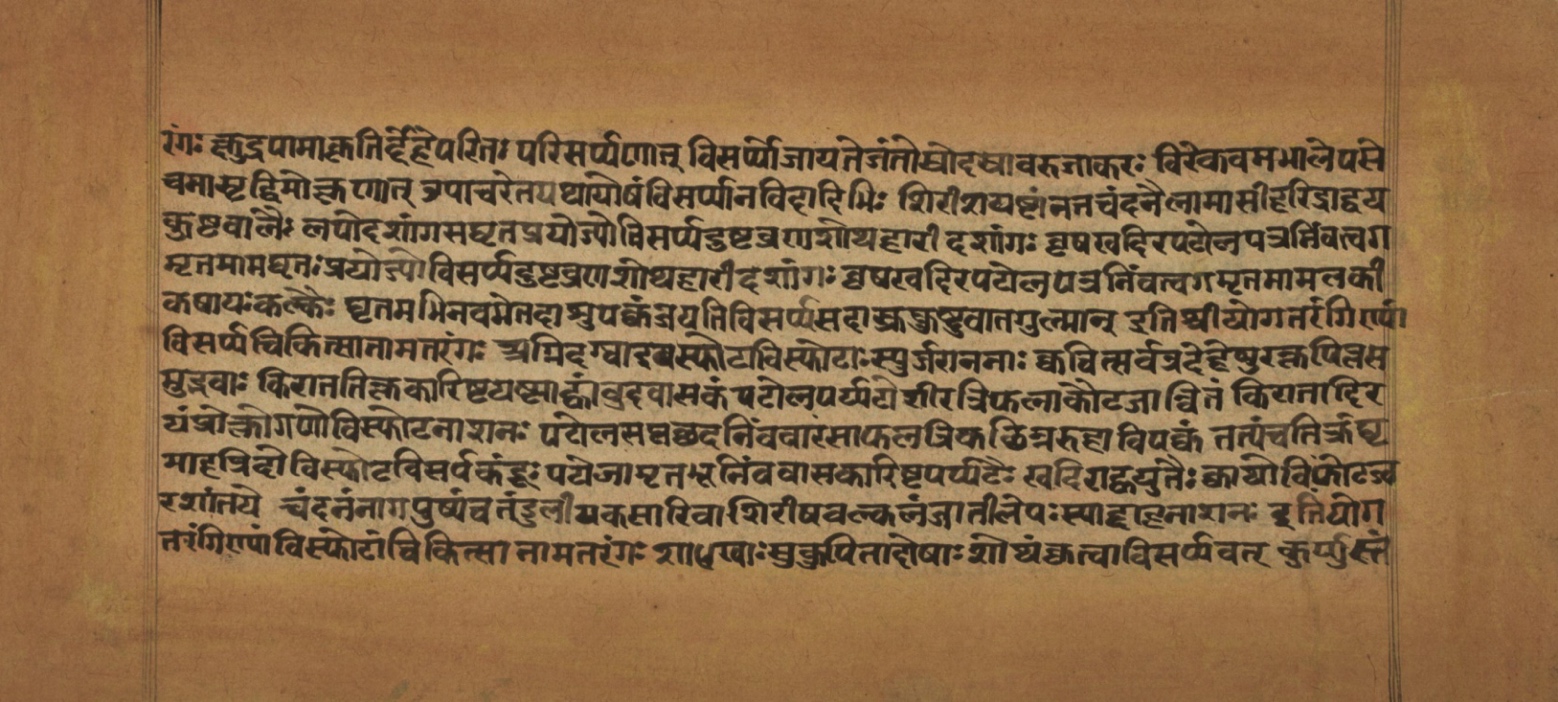 रंगः क्षुद्रपामाकृतिर्द्देहेपरितः परिसर्प्पणात् विसर्प्पोजायतेजंतोस्रोदस्रावरुजाकरः विरेकवमभालेपसे
चमासृग्विमोक्षणात् उपाचरेतयथायोषंविसर्प्पानविदाहिभिः शिरीशयष्टांनतचंदनैलामासीहरिद्राद्वय
कुष्टवालैः लपोदशांगसघृतप्रयोज्योविसर्प्पदुष्टव्रणशोथहारी दशांगः वृषखदिरपटोलपत्रनिंवत्वग
मृतमामघृतःप्रयोज्योविसर्प्पदुष्टव्रणशोथहारीदशांगः वृषखदिरपटोलपत्रनिंवत्वगमृतमामलकी
कषायःकल्कैः घृतमभिनवमेतदाशुपक्वंजयतिविसर्प्पसदास्रकुष्टवातगुल्मान् इतिश्रीयोगतरंगिण्यां
विसर्प्पचिकित्सानामतरंगः अग्निदग्धादवस्फोटाविस्फोटाःस्युर्जराननाः क्वचित्सर्वत्रदेहेषुरक्तपित्तस
मुद्भवाः किराततिक्तकारिष्टयष्ट्याह्वांवुदवासकं पटोलपर्प्पटोशीरत्रिफलाकौटजान्वितं किरातादिर
यंप्रोक्तोगणोविस्फोटनाशनः पटोलसप्तछदनिंववारंसाफलत्रिकछिन्नरुहाविपक्वं तत्पंचतिक्तंघृ
माहत्रिदोविस्फोटविसर्पकंडूः पटोजामृतभूनिंववासकारिष्टपर्प्पटैः खदिराष्टयुतैः क्वाथोविफोटज्व
रशांतये चंदनंनागपुष्पंचतंडुलीयकसारिवा शिरीषवल्कलंजातीलेपःस्याद्दाहनाशनः इतियोग
तरंगिण्यांविस्फोटांचिकित्सानामतरंगः शाधखाःसुकुपितादोषाःशोथंकृत्वाविसर्प्पवत् कुर्प्पुस्तं